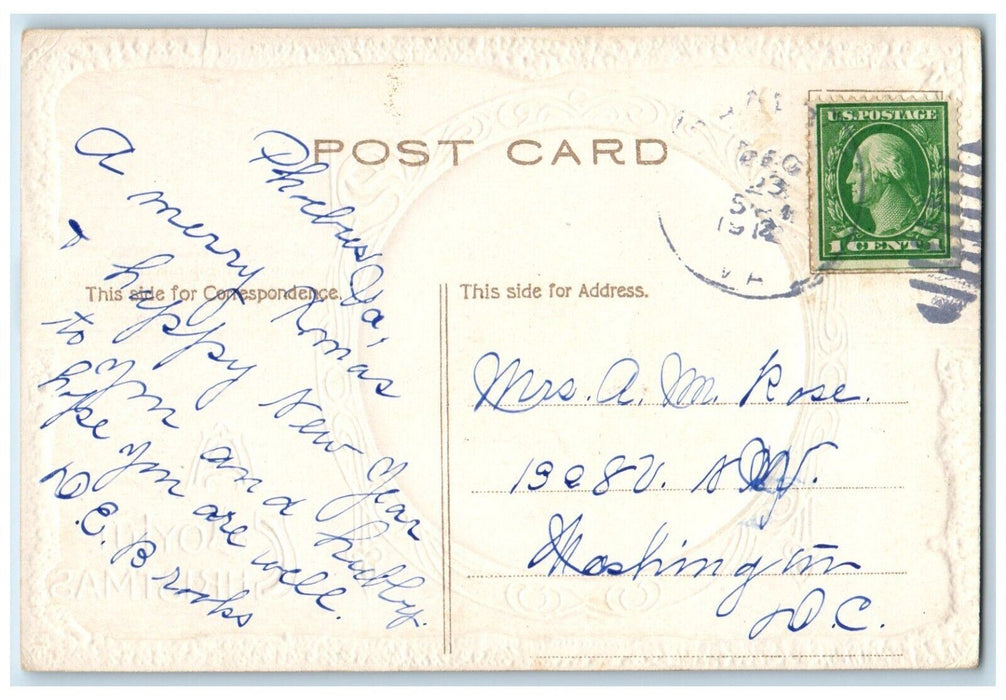 POST CARD
U.S. POSTAGE
1 CENT 1
DEC
23
1912
VA
Phoebus Va,
A merry Xmas
& happy New Year
to you and hubby.
hope you are well.
D. E. Brooks
This side for Correspondence.
This side for Address.
Mrs. A. M. Rose.
N.W.
Washington
D.C.
JOYFUL
CHRISTMAS